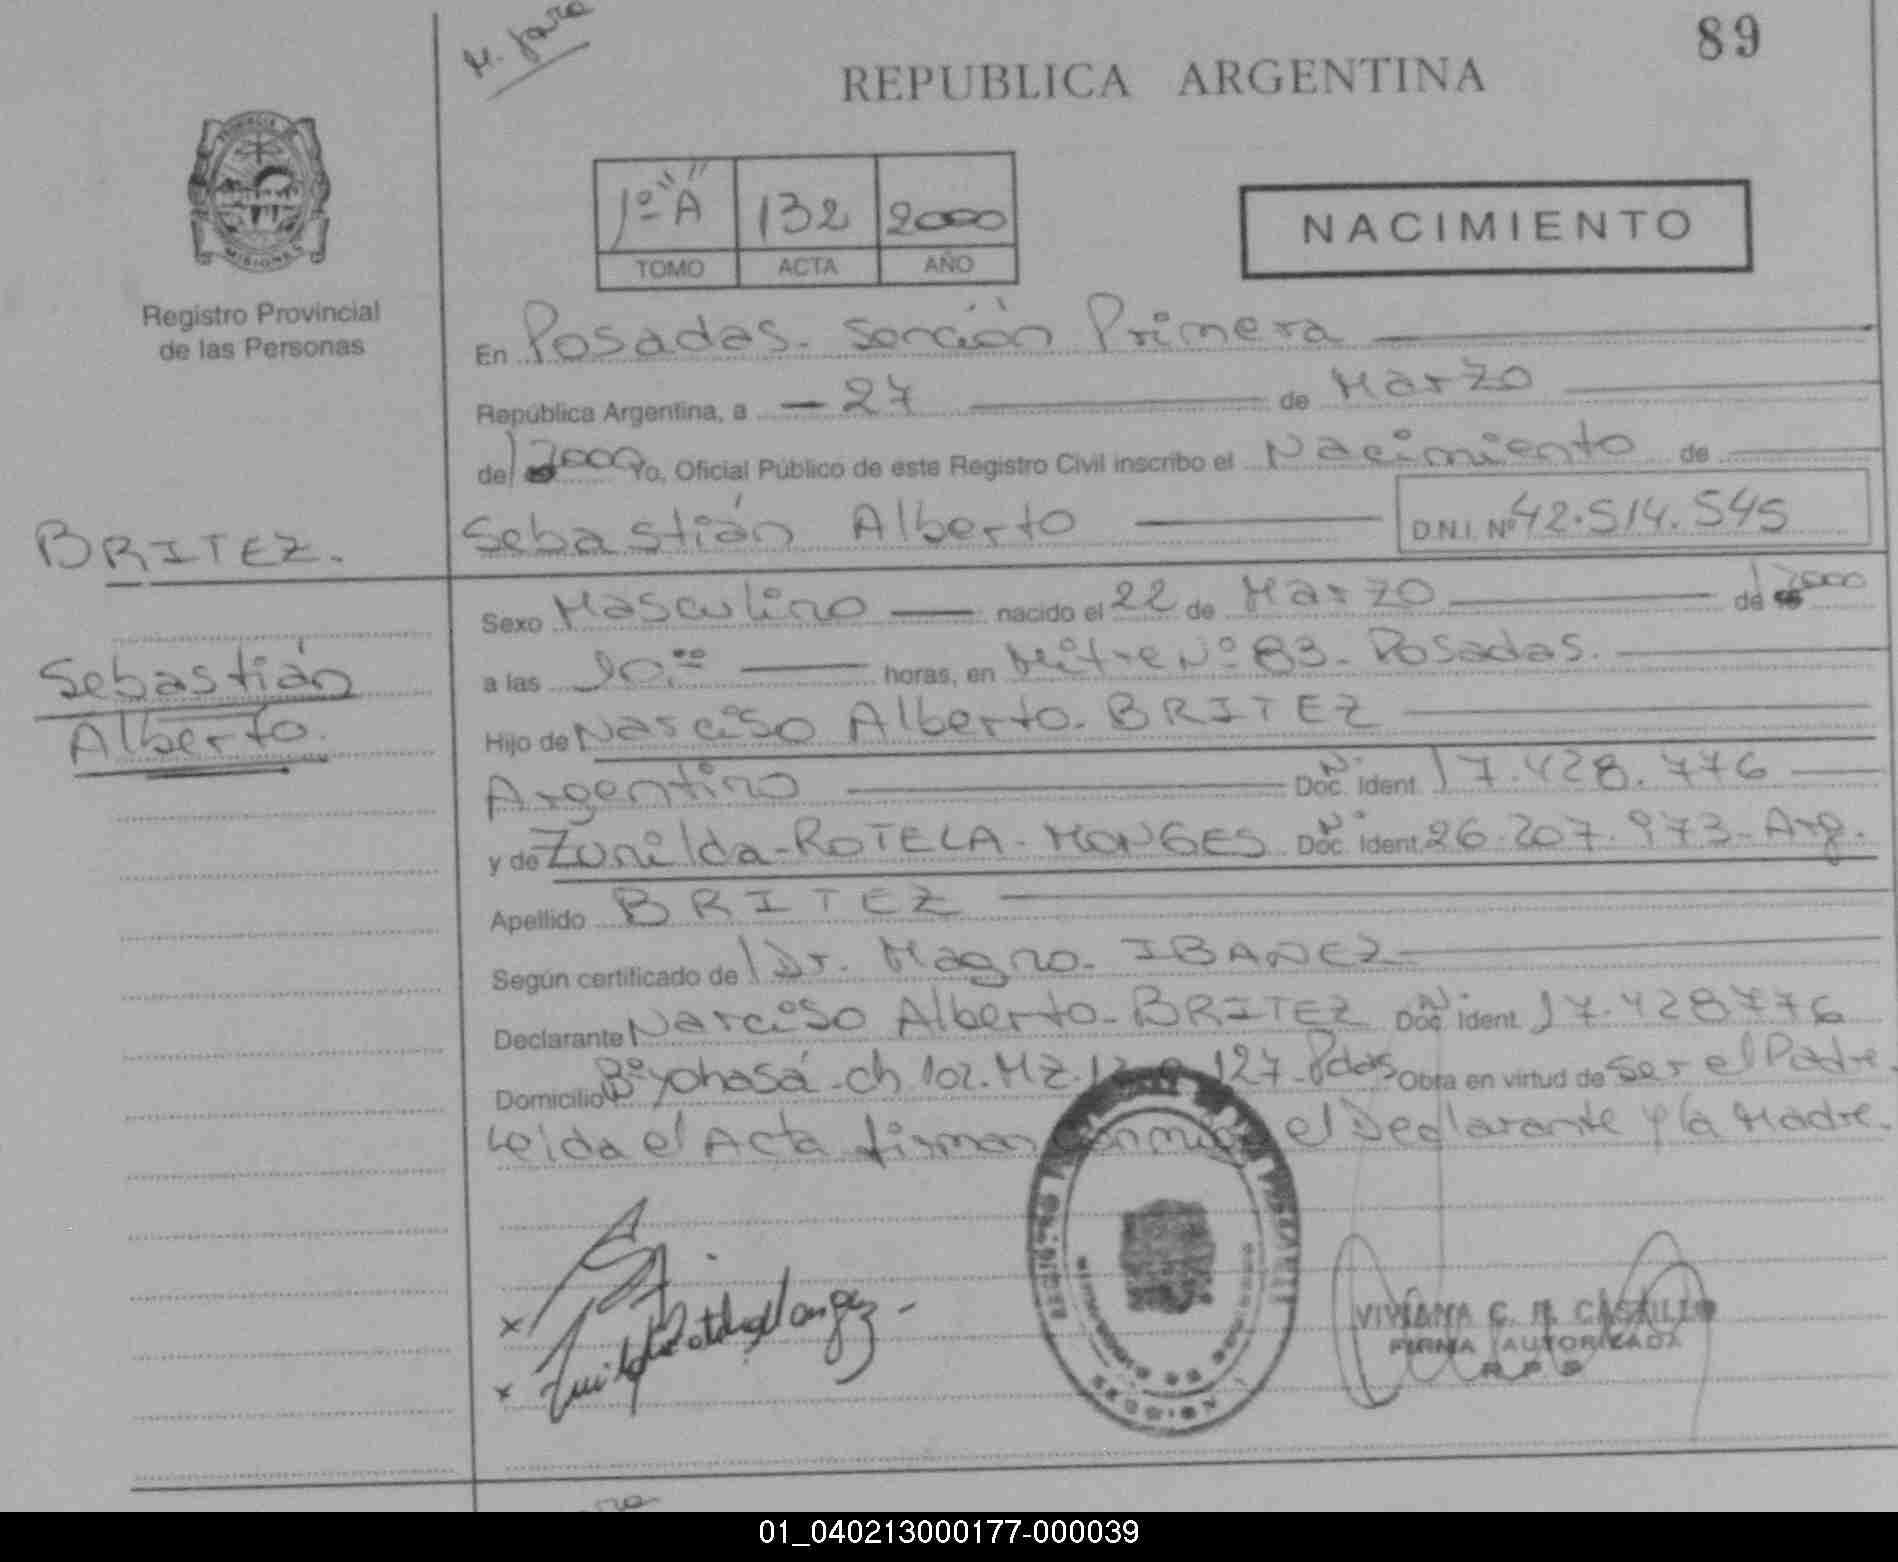 89
REPUBLICA ARGENTINA
PROVINCIA DE
MISIONES
Registro Provincial
de las Personas
1º "A" 132 2000
TOMO ACTA AÑO
NACIMIENTO
En Posadas. Sección Primera
República Argentina, a 27 de Marzo
de 2000 Yo, Oficial Público de este Registro Civil inscribo el Nacimiento de
BRITEZ.
Sebastián Alberto D.N.I. Nº 42.514.545
Sexo Masculino nacido el 22 de Marzo de 2000
Sebastián
Alberto.
a las horas, en Mitre Nº 83. Posadas.
Hijo de Narciso Alberto. BRITEZ
Argentino Doc. Ident. 17.428.776
y de Zunilda ROTELA. MONGES Doc. Ident. 26.207.973 - Arg.
Apellido BRITEZ
Según certificado de Dr. Magno. IBAÑEZ
Declarante Narciso Alberto. BRITEZ Doc. Ident. 17.428776
Domicilio Bº Yohasá. ch 102. MZ. 127. Pdas Obra en virtud de Ser el Padre.
Leida el Acta firman conmigo el Declarante y la Madre.
VIVIANA C. R. CASTILLO
FIRMA AUTORIZADA
R P S
01_040213000177-000039